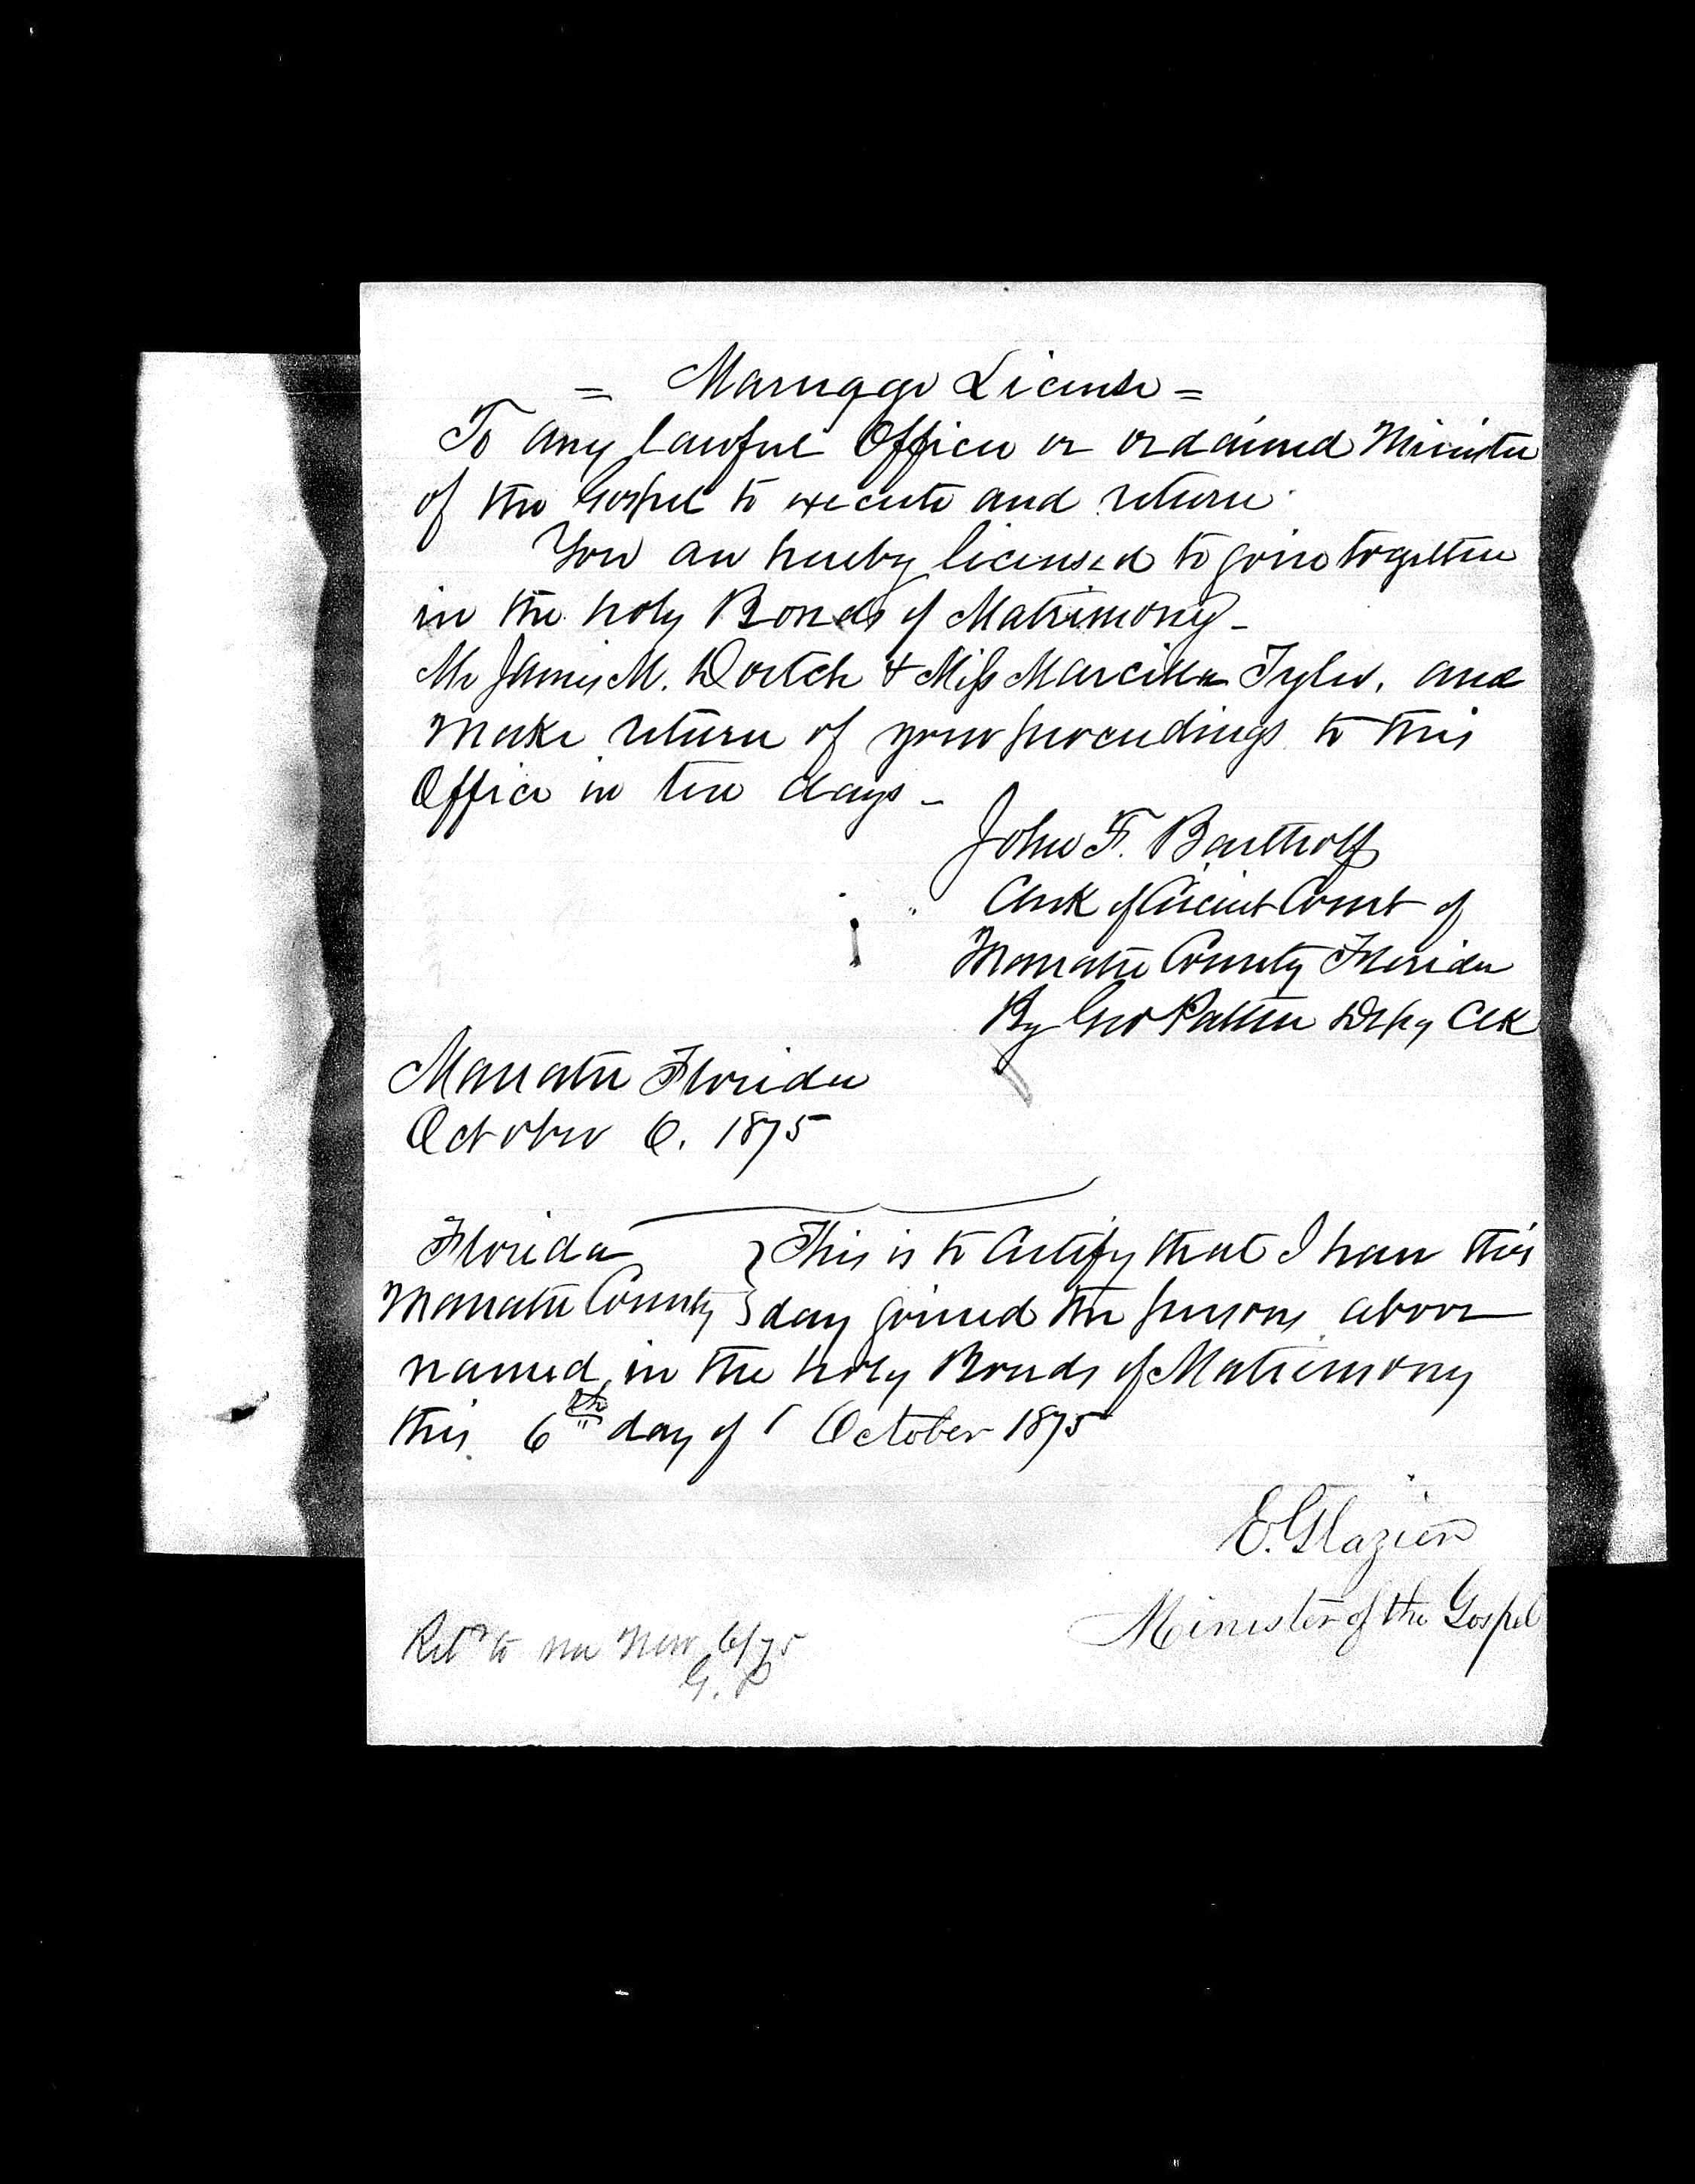 = Marriage License =
To any lawful Officer or ordained Minister
of the Gospel to execute and return.
You are hereby licensed to join together
in the holy Bonds of Matrimony -
Mr James M. Dortch & Miss Marcilla Tyler, and
make return of your proceedings to this
Office in ten days -
John F. Bartholf
Clerk of Circuit Court of
Manatee County Florida
By Geo Patten Depy Clk
Manatee Florida
October 6. 1875
Florida } This is to Certify that I have this
Manatee County } day joined the persons above
named in the holy Bonds of Matrimony
this 6th day of October 1875
E. Glazier
Minister of the Gospel
Retd to me Nov 6/75
G. P